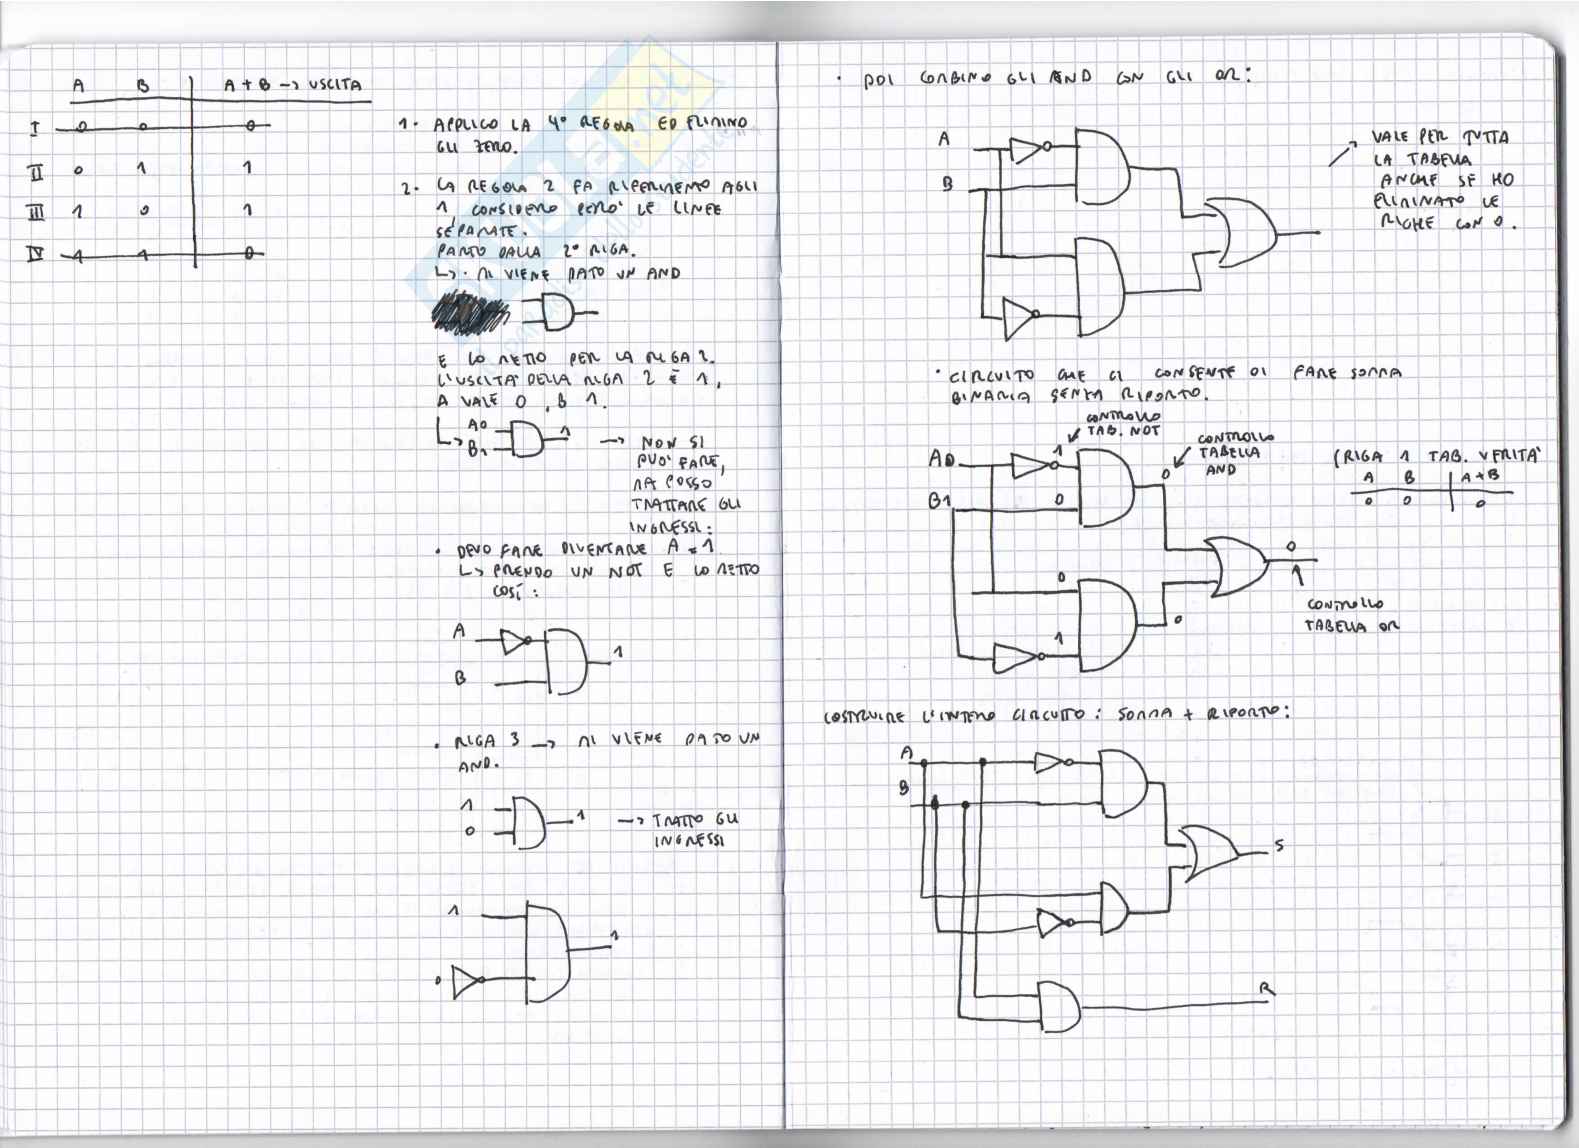 A B A + B → USCITA
I 0 0 0
II 0 1 1
III 1 0 1
IV 1 1 0
1. APPLICO LA 4° REGOLA ED ELIMINO
GLI ZERO.
2. LA REGOLA 2 FA RIFERIMENTO AGLI
1, CONSIDERO PERO' LE LINEE
SEPARATE.
PARTO DALLA 2° RIGA.
↳ . MI VIENE DATO UN AND
E LO METTO PER LA RIGA 2.
L'USCITA DELLA RIGA 2 È 1,
A VALE 0, B 1.
A0
B1
1
→ NON SI
PUO' FARE,
MA POSSO
TRATTARE GLI
INGRESSI:
. DEVO FARE DIVENTARE A = 1
↳ PRENDO UN NOT E LO METTO
COSÍ:
A
B
1
. RIGA 3 → MI VIENE DATO UN
AND.
1
0
1
→ TRATTO GLI
INGRESSI
1
0
1
. POI COMBINO GLI AND CON GLI OR:
A
B
VALE PER TUTTA
LA TABELLA
ANCHE SE HO
ELIMINATO LE
RIGHE CON 0.
. CIRCUITO CHE CI CONSENTE DI FARE SOMMA
BINARIA SENZA RIPORTO.
CONTROLLO
TAB. NOT
CONTROLLO
TABELLA
AND
(RIGA 1 TAB. VERITA'
A B A + B
0 0 0
A0
1
0
B1
0
0
0
1
0
CONTROLLO
TABELLA OR
COSTRUIRE L'INTERO CIRCUITO: SOMMA + RIPORTO:
A
B
S
R